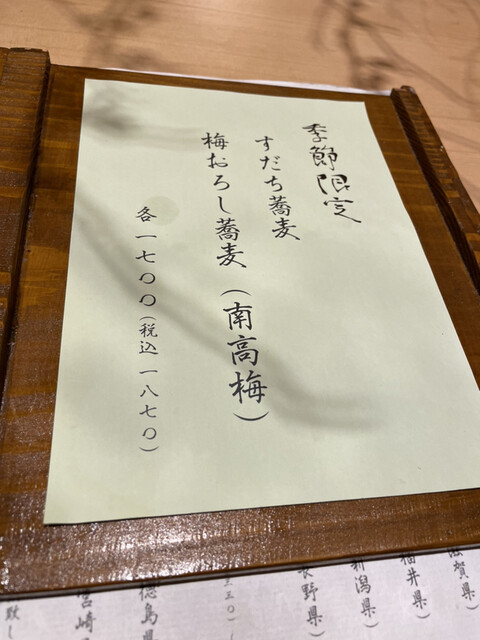 季節限定
すだち蕎麦
梅おろし蕎麦(南高梅)
各一七〇〇(税込一八七〇)
滋賀県
福井県
新潟県
長野県
徳島県
宮崎
致し